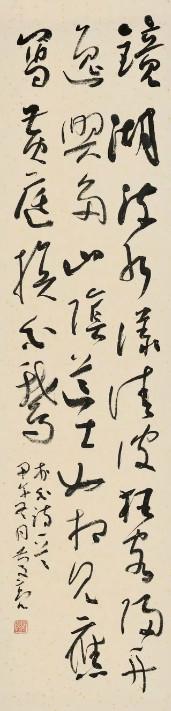 鏡湖流水漾清波狂客歸舟
逸興多山陰道士如相見應
寫黃庭換白鵝
李白詩一首
甲午月